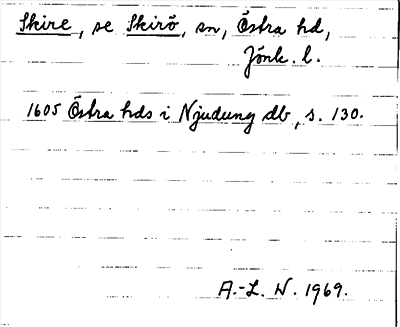 Skire, se Skirö, sn, Östra hd,
Jönk. l.
1605 Östra hds i Njudung db, s. 130.
A.-L. N. 1969.